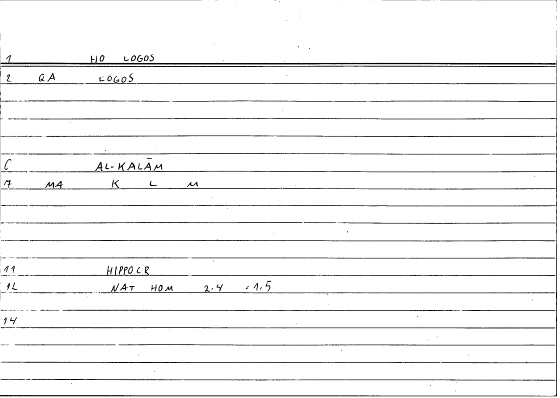 1 HO LOGOS
2 QA LOGOS
6 AL-KALĀM
7 MA K L M
11 HIPPOCR
12 NAT HOM 2.4 1.5
14